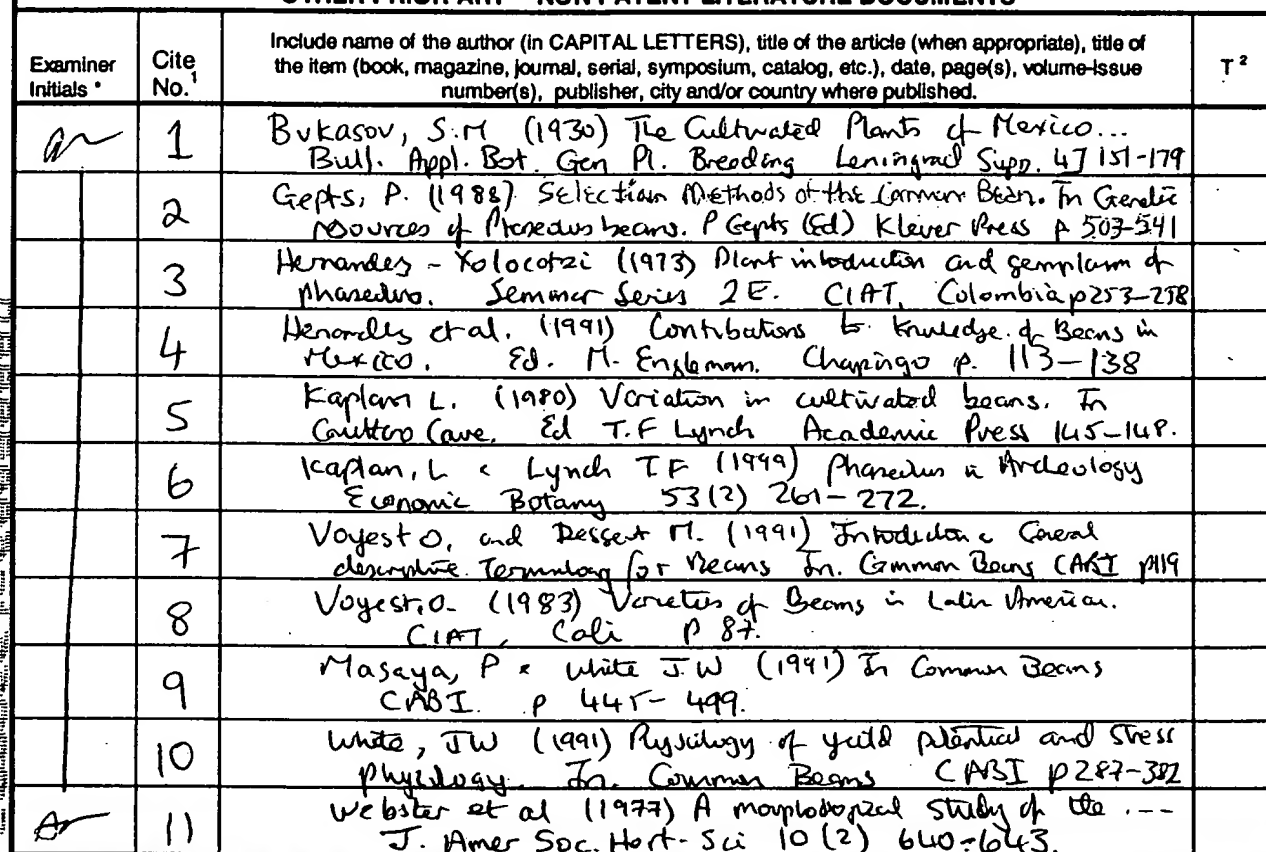 OTHER PRIOR ART - NON PATENT LITERATURE DOCUMENTS
Examiner Initials *
Cite No.1
Include name of the author (in CAPITAL LETTERS), title of the article (when appropriate), title of
the item (book, magazine, journal, serial, symposium, catalog, etc.), date, page(s), volume-issue
number(s), publisher, city and/or country where published.
T 2
1
Bukasov, S.M (1930) The Cultivated Plants of Mexico...
Bull. Appl. Bot. Gen Pl. Breeding Leningrad Supp. 47 151-179
2
Gepts, P. (1988). Selection Methods of the Common Bean. In Genetic
resources of Phaseolus beans. P Gepts (Ed) Klever Press p 503-541
3
Hernandez - Xolocotzi (1973) Plant introduction and germplasm of
phaseolus. Seminar Series 2E. CIAT, Colombia p253-258
4
et al. (1991) Contributions to knowledge of Beans in
Mexico. Ed. M. Engleman. Chapingo p. 113-138
5
Kaplan L. (1980) Variation in cultivated beans. In
Cave, Ed T.F Lynch Academic Press 145-148.
6
Kaplan, L & Lynch TF (1999) Phaseolus in Archeology
Economic Botany 53(2) 261-272.
7
Voyest O, and Dessert M. (1991)
descriptive for Beans In. Common Beans CABI
8
Voyest, O. (1983) Varieties of Beans in Latin America.
CIAT, Cali p 87.
9
Masaya, P & White J.W (1991) In Common Beans
CABI. p 445-499.
10
White, JW (1991) Physiology of yield potential and stress
physiology. In. Common Beans CABI p287-382
11
Webster et al (1977) A study of the ...
J. Amer Soc. Hort-Sci 10 (2) 640-643.